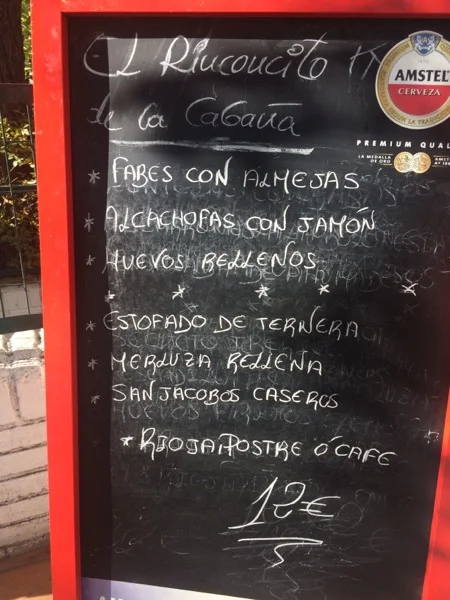 El Rinconcito
de la Cabaña
AMSTEL
CERVEZA
PREMIUM QUAL
LA MEDALLA
DE ORO
* FABES CON ALMEJAS
* ALCACHOFAS CON JAMÓN
* HUEVOS RELLENOS
* * * * *
* ESTOFADO DE TERNERA
* MERLUZA RELLENA
* SANJACOBOS CASEROS
* RIOJA, POSTRE Ó CAFE
12€